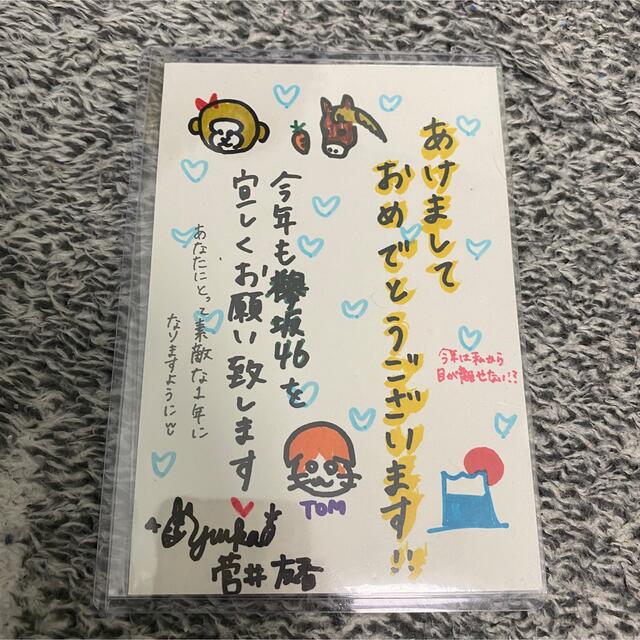 あけまして
おめでとうございます!!
今年は私から
目が離せない!?
今年も欅坂46を
宜しくお願い致します
あなたにとって素敵な1年に
なりますように
TOM
yuuka
菅井友香